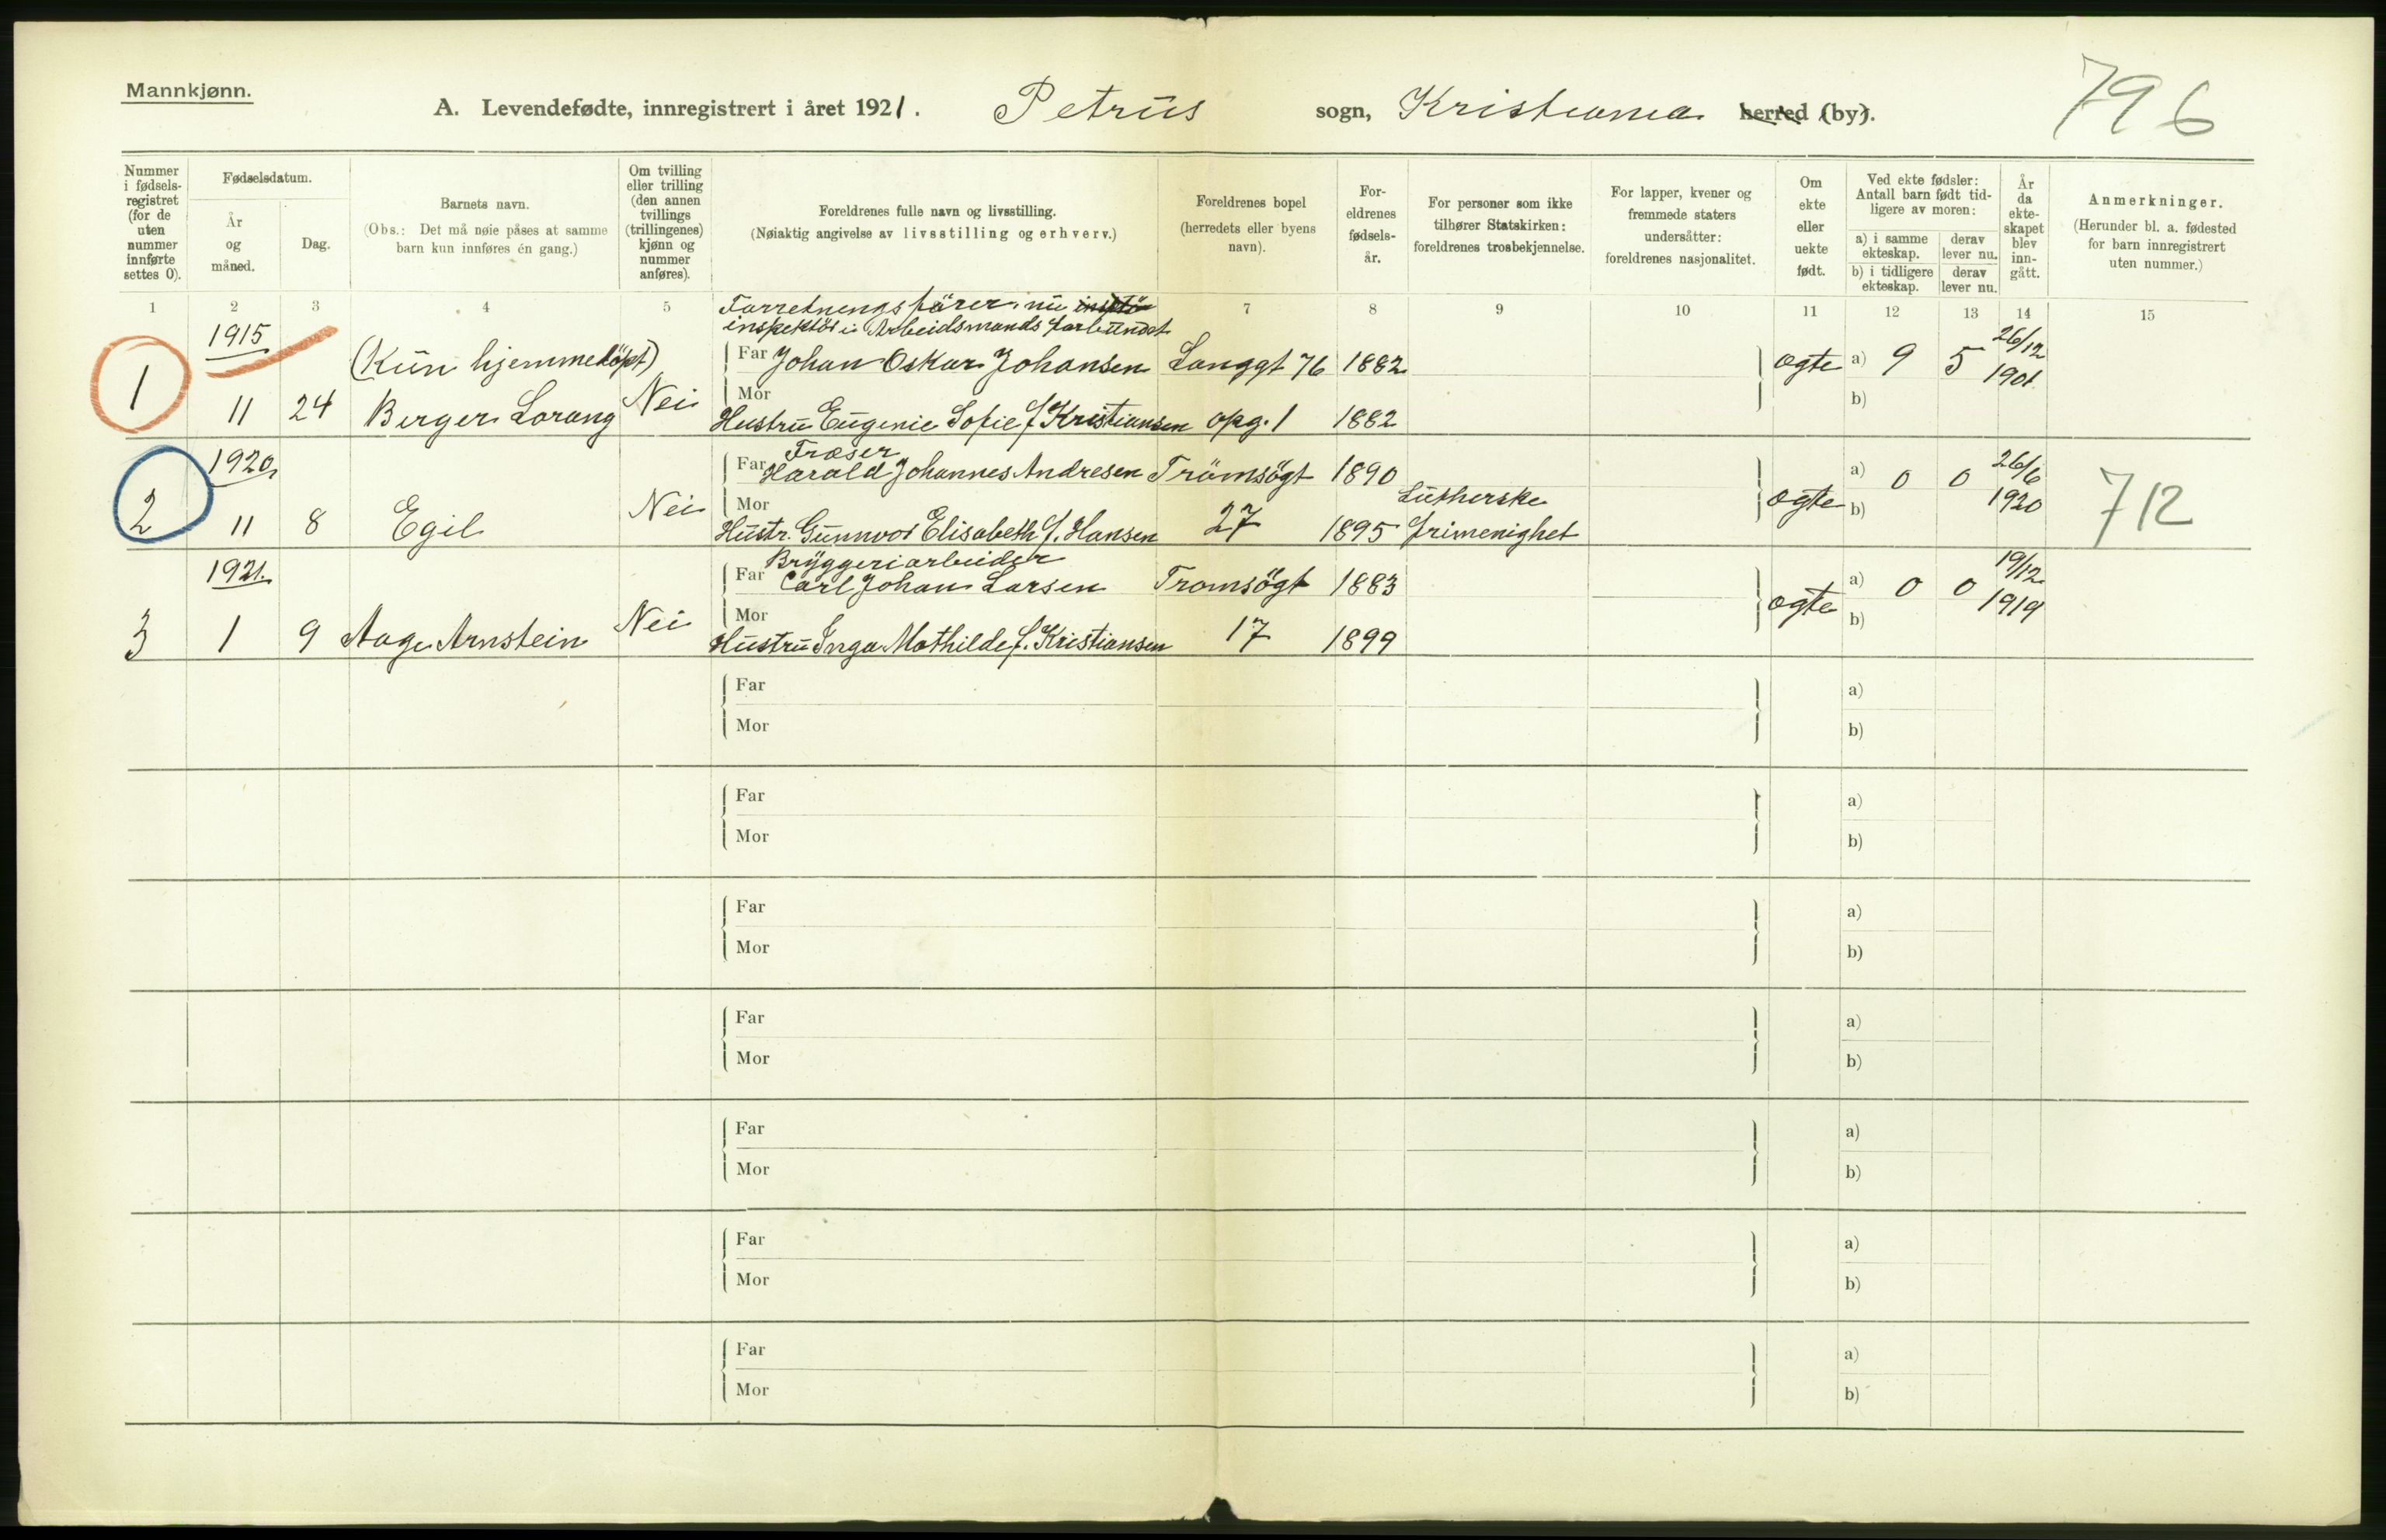 Mannkjønn.
A. Levendefødte, innregistrert i året 1921. Petrus sogn, Kristiania herred (by).
796
Nummer i fødsels-registret (for de uten nummer innførte settes 0).
Fødselsdatum.
År og måned.
Dag.
Barnets navn.
(Obs.: Det må nøie påses at samme barn kun innføres én gang.)
Om tvilling eller trilling (den annen tvillings (trillingenes) kjønn og nummer anføres).
Foreldrenes fulle navn og livsstilling.
(Nøiaktig angivelse av livsstilling og erhverv.)
Foreldrenes bopel (herredets eller byens navn).
For-eldrenes fødsels-år.
For personer som ikke tilhører Statskirken: foreldrenes trosbekjennelse.
For lapper, kvener og fremmede staters undersåtter: foreldrenes nasjonalitet.
Om ekte eller uekte født.
Ved ekte fødsler: Antall barn født tid-ligere av moren:
a) i samme ekteskap.
derav lever nu.
b) i tidligere ekteskap.
derav lever nu.
År da ekte-skapet blev inn-gått.
Anmerkninger.
(Herunder bl. a. fødested for barn innregistrert uten nummer.)
1 2 3 4 5 7 8 9 10 11 12 13 14 15
Forretningsförer, nu
inspektör i Arbeidsmandsforbundet
1915 (Kun hjemmedöpt) Far Johan Oskar Johansen Langgt 76 1882 ægte a) 9 5 26/12 1901
1 11 24 Berger Lorang Nei Mor b)
Hustru Eugenie Sofie f Kristiansen opg. 1 1882
Fræser
1920 Far Harald Johannes Andresen Tromsögt 1890 a) 0 0 26/6 1920
2 11 8 Egil Nei Mor Lutherske ægte b) 712
Hustr. Gunnvor Elisabeth f. Hansen 27 1895 frimenighet
Bryggeriarbeider
1921. Far Carl Johan Larsen Tromsögt 1883 a) 0 0 19/12 1919
3 1 9 Aage Arnstein Nei Mor ægte b)
Hustru Inga Mathilde f. Kristiansen 17 1899
Far a)
Mor b)
Far a)
Mor b)
Far a)
Mor b)
Far a)
Mor b)
Far a)
Mor b)
Far a)
Mor b)
Far a)
Mor b)